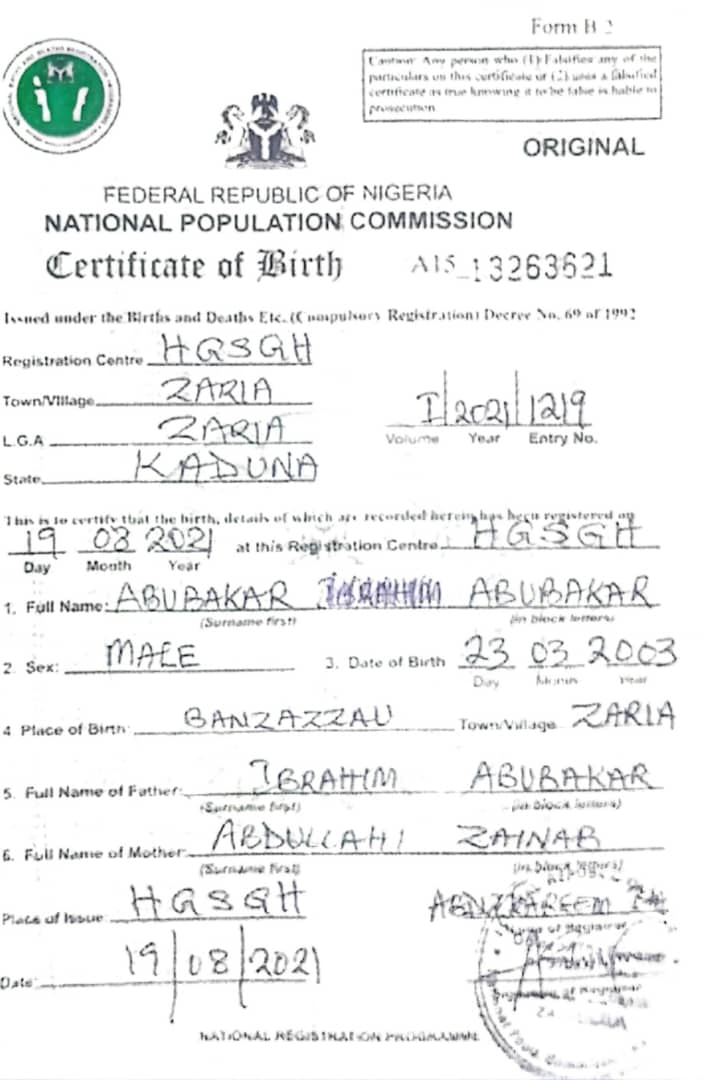 Form B 2
Caution: Any person who (1) Falsifies any of the
particulars on this certificate or (2) uses a falsified
certificate as true knowing it to be false is liable to
prosecution
ORIGINAL
FEDERAL REPUBLIC OF NIGERIA
NATIONAL POPULATION COMMISSION
Certificate of Birth A15 13263621
Issued under the Births and Deaths Etc. (Compulsory Registration) Decree No. 69 of 1992
Registration Centre HGSGH
Town/Village ZARIA
L.G.A ZARIA
State KADUNA
I/2021/1219
Volume Year Entry No.
This is to certify that the birth, details of which are recorded herein has been registered on
19 08 2021 at this Registration Centre HGSGH
Day Month Year
1. Full Name: ABUBAKAR IBRAHIM ABUBAKAR
(Surname first) (in block letters)
2. Sex: MALE 3. Date of Birth 23 03 2003
Day Month Year
4 Place of Birth: BANZAZZAU Town/Village ZARIA
5. Full Name of Father: IBRAHIM ABUBAKAR
(Surname first) (in block letters)
6. Full Name of Mother: ABDULLAHI ZAINAB
(Surname first) (in block letters)
Place of Issue: HGSGH
Name of Registrar
Date: 19/08/2021
Signature of Registrar
NATIONAL REGISTRATION PROGRAMME